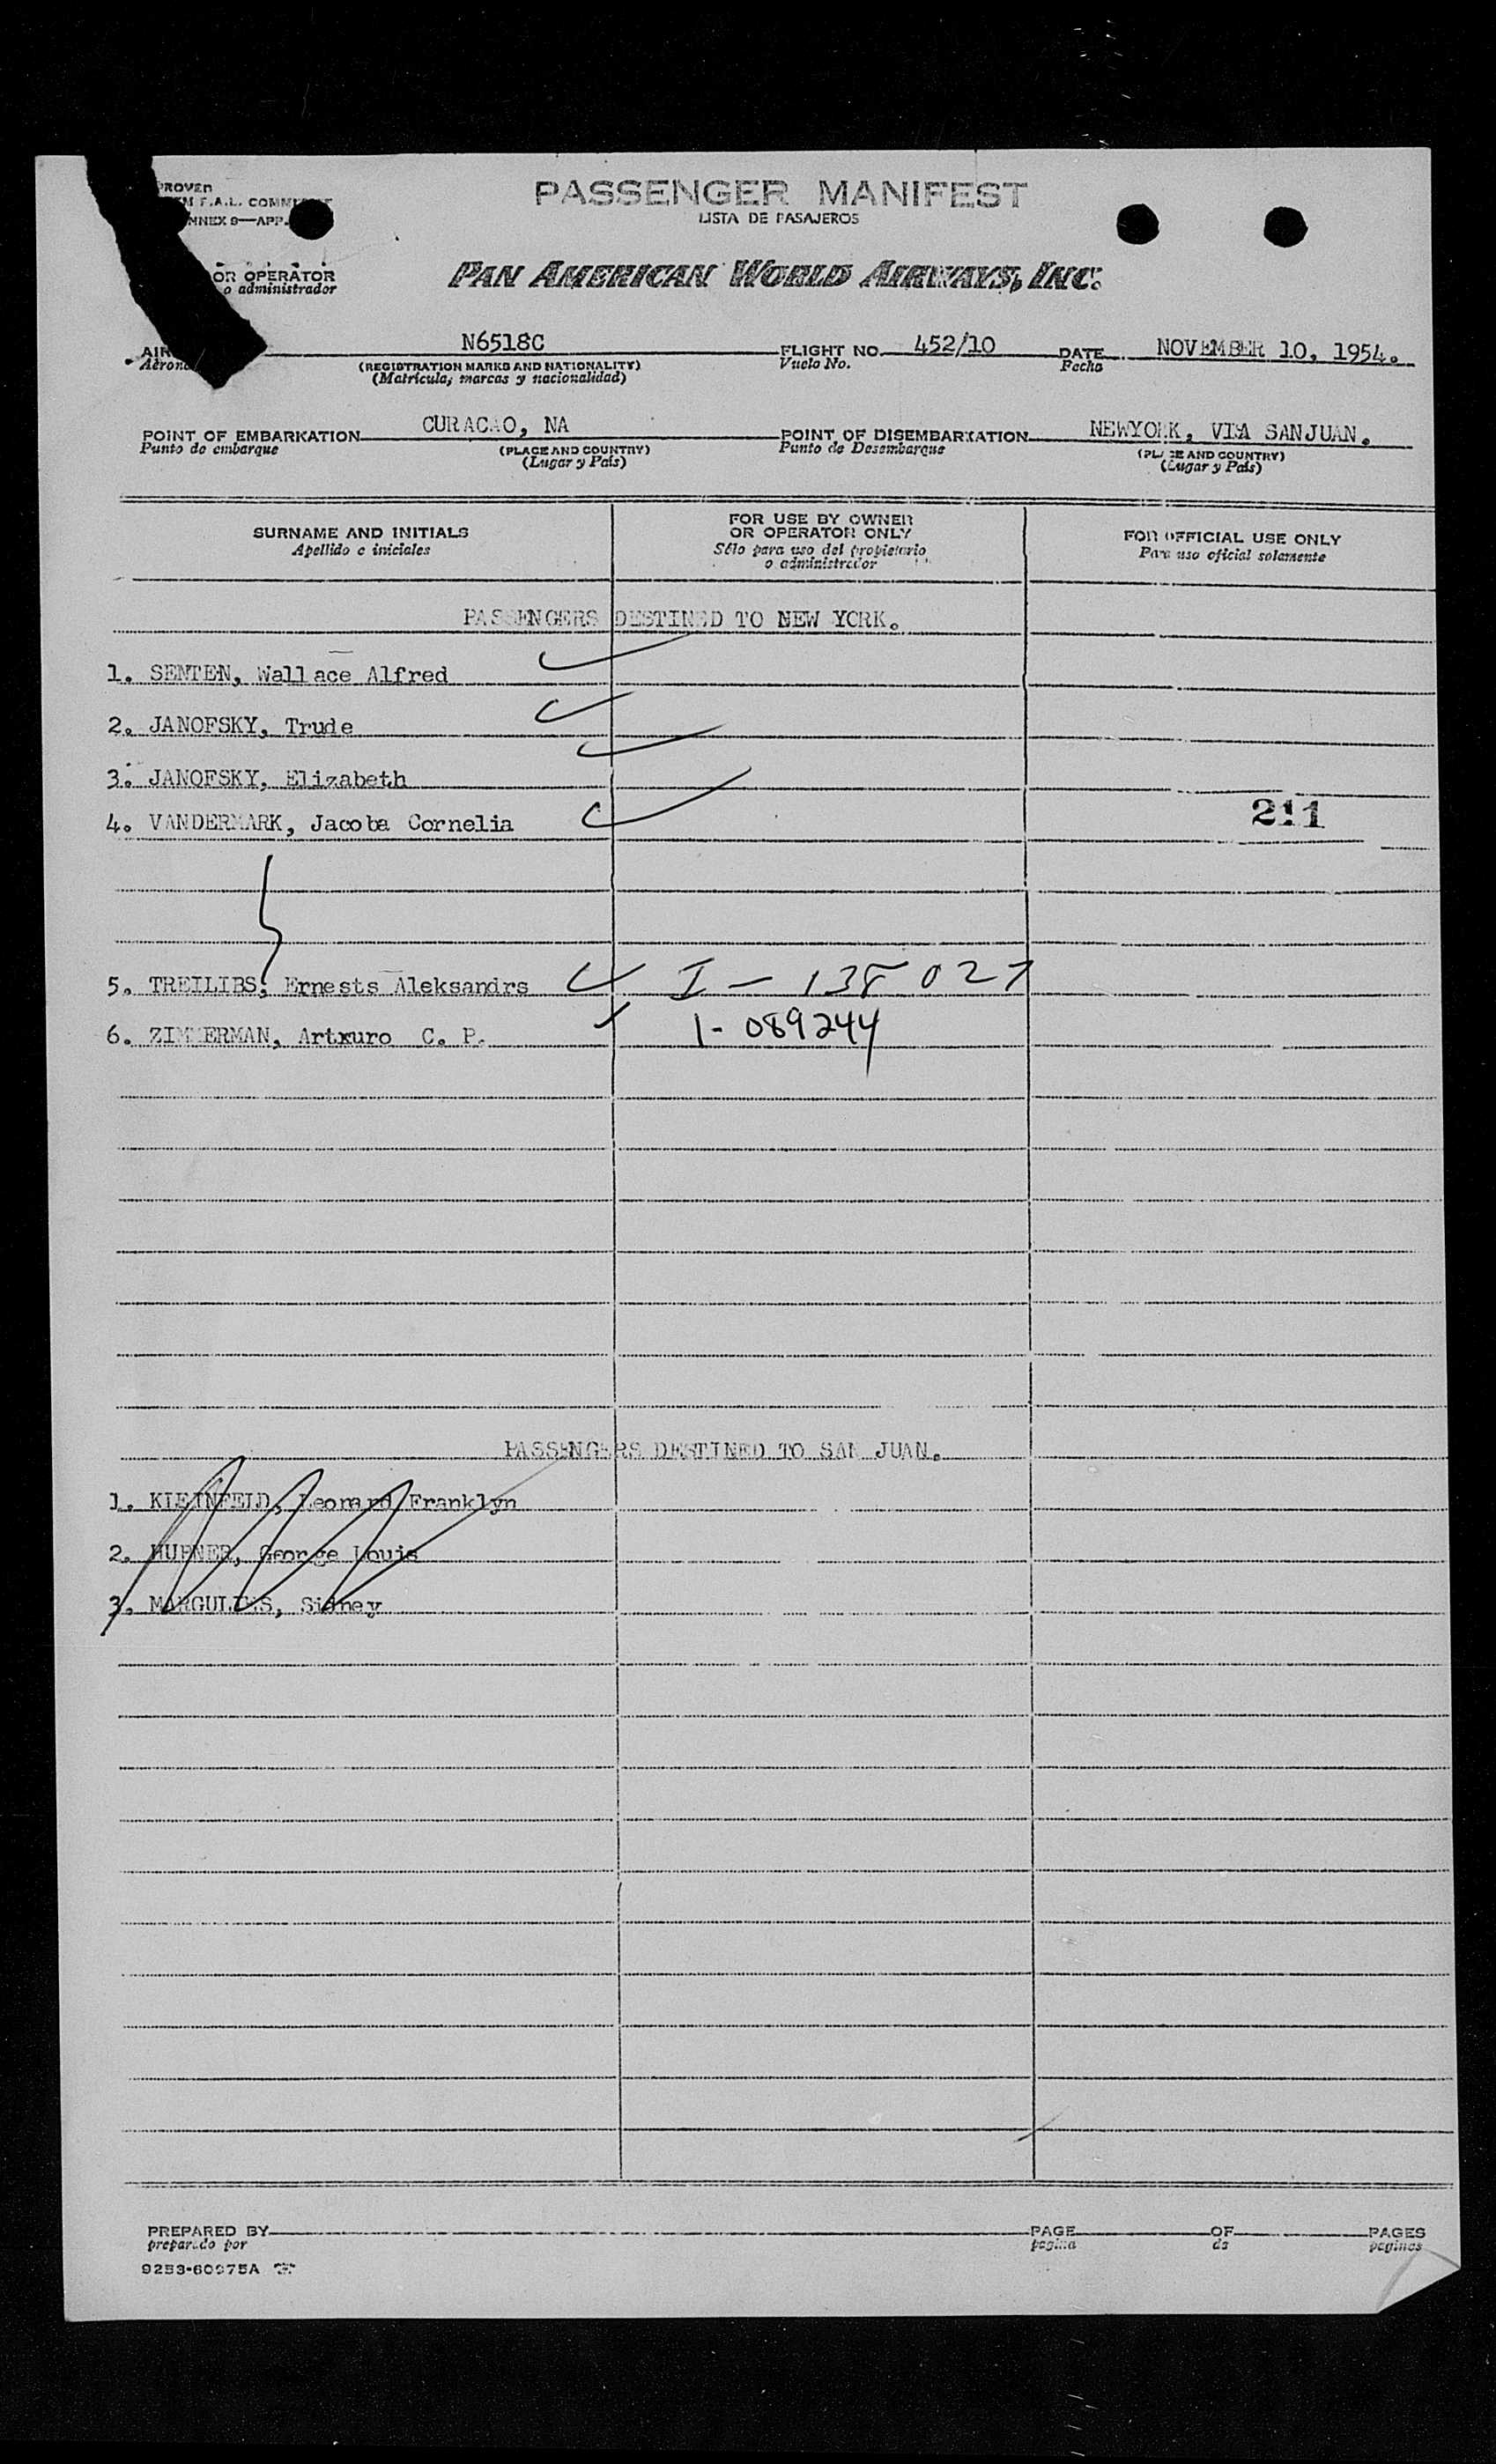 PASSENGER MANIFEST
LISTA DE PASAJEROS
PROVED
F.A.L. COMMI
NNEX 9—APP.
OR OPERATOR
o administrador
PAN AMERICAN WORLD AIRWAYS, INC.
AIR N6518C FLIGHT NO. 452/10 DATE NOVEMBER 10, 1954.
Aerona (REGISTRATION MARKS AND NATIONALITY) Vuelo No. Fecha
(Matrícula, marcas y nacionalidad)
POINT OF EMBARKATION CURACAO, NA POINT OF DISEMBARKATION NEWYORK, VIA SANJUAN.
Punto de embarque (PLACE AND COUNTRY) Punto de Desembarque (PLACE AND COUNTRY)
(Lugar y País) (Lugar y País)
SURNAME AND INITIALS FOR USE BY OWNER OR OPERATOR ONLY FOR OFFICIAL USE ONLY
Apellido e iniciales Sólo para uso del propietario o administrador Para uso oficial solamente
PASSENGERS DESTINED TO NEW YORK.
1. SENTEN, Wallace Alfred
2. JANOFSKY, Trude
3. JANOFSKY, Elizabeth
4. VANDERMARK, Jacoba Cornelia 211
5. TREILIBS, Ernests Aleksandrs I - 138 027
6. ZIMMERMAN, Artxuro C. P. 1- 089244
PASSENGERS DESTINED TO SAN JUAN.
1. KLEINFELD, Leonard Franklyn
2. HUBNER, George Louis
3. MARGULIES, Sidney
PREPARED BY PAGE OF PAGES
preparado por pagina de paginas
9253-60975A